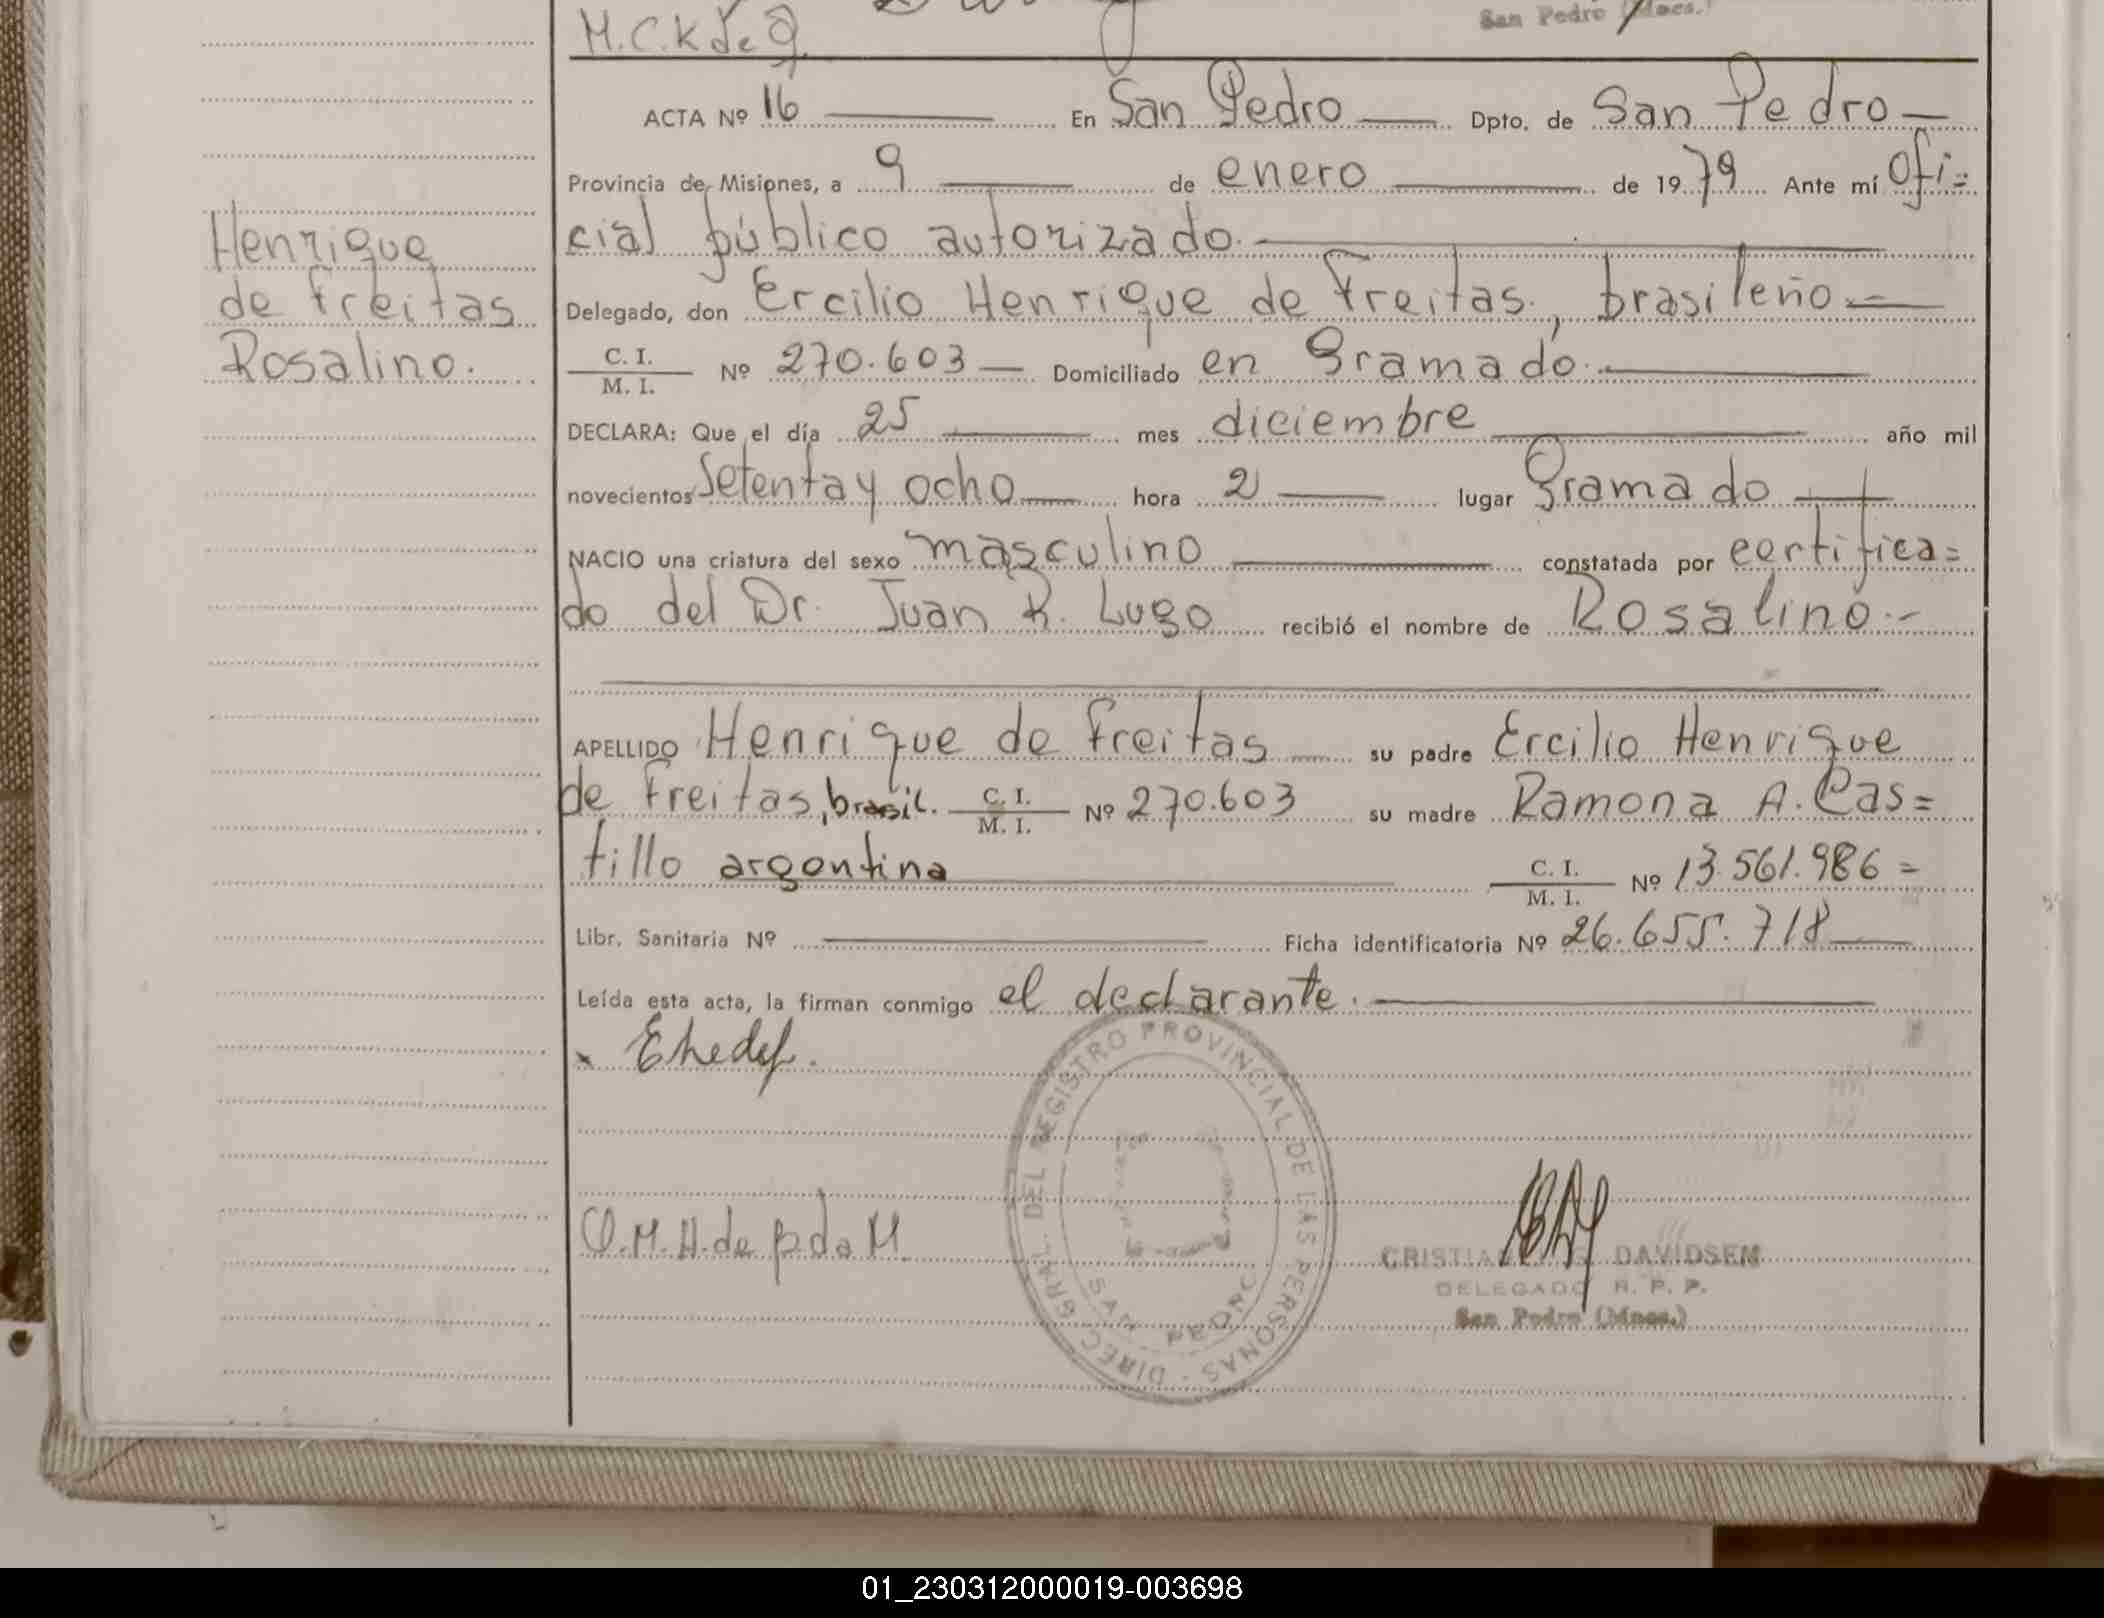 M.C.K de g.
San Pedro (Mnes.)
ACTA Nº 16 En San Pedro Dpto. de San Pedro
Provincia de Misiones, a 9 de enero de 1979 Ante mí Ofi=
cial público autorizado.
Delegado, don Ercilio Henrique de Freitas, brasileño
C. I.
M. I. Nº 270.603 Domiciliado en Gramado.
DECLARA: Que el día 25 mes diciembre año mil
novecientos setenta y ocho hora 2 lugar Gramado
NACIO una criatura del sexo masculino constatada por certifica=
do del Dr. Juan R. Lugo recibió el nombre de Rosalino.-
APELLIDO Henrique de Freitas su padre Ercilio Henrique
de Freitas, brasil. C. I. M. I. Nº 270.603 su madre Ramona A. Cas=
tillo argentina C. I. M. I. Nº 13.561.986=
Libr. Sanitaria Nº Ficha identificatoria Nº 26.655.718
Leída esta acta, la firman conmigo el declarante.
Henrique
de Freitas
Rosalino.
x Ehedef.
O.M.H. de p. da M.
DIREC. GRAL. DEL REGISTRO PROVINCIAL DE LAS PERSONAS -
SAN PEDRO
CRISTIAN G. DAVIDSEM
DELEGADO R. P. P.
San Pedro (Mnes.)
01_230312000019-003698